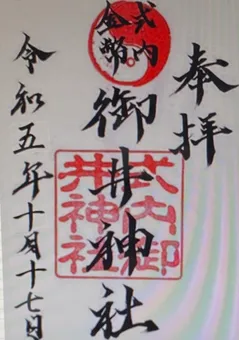 奉拝
式内
金幣
御井神社
式内御
井神社
令和五年十月十七日